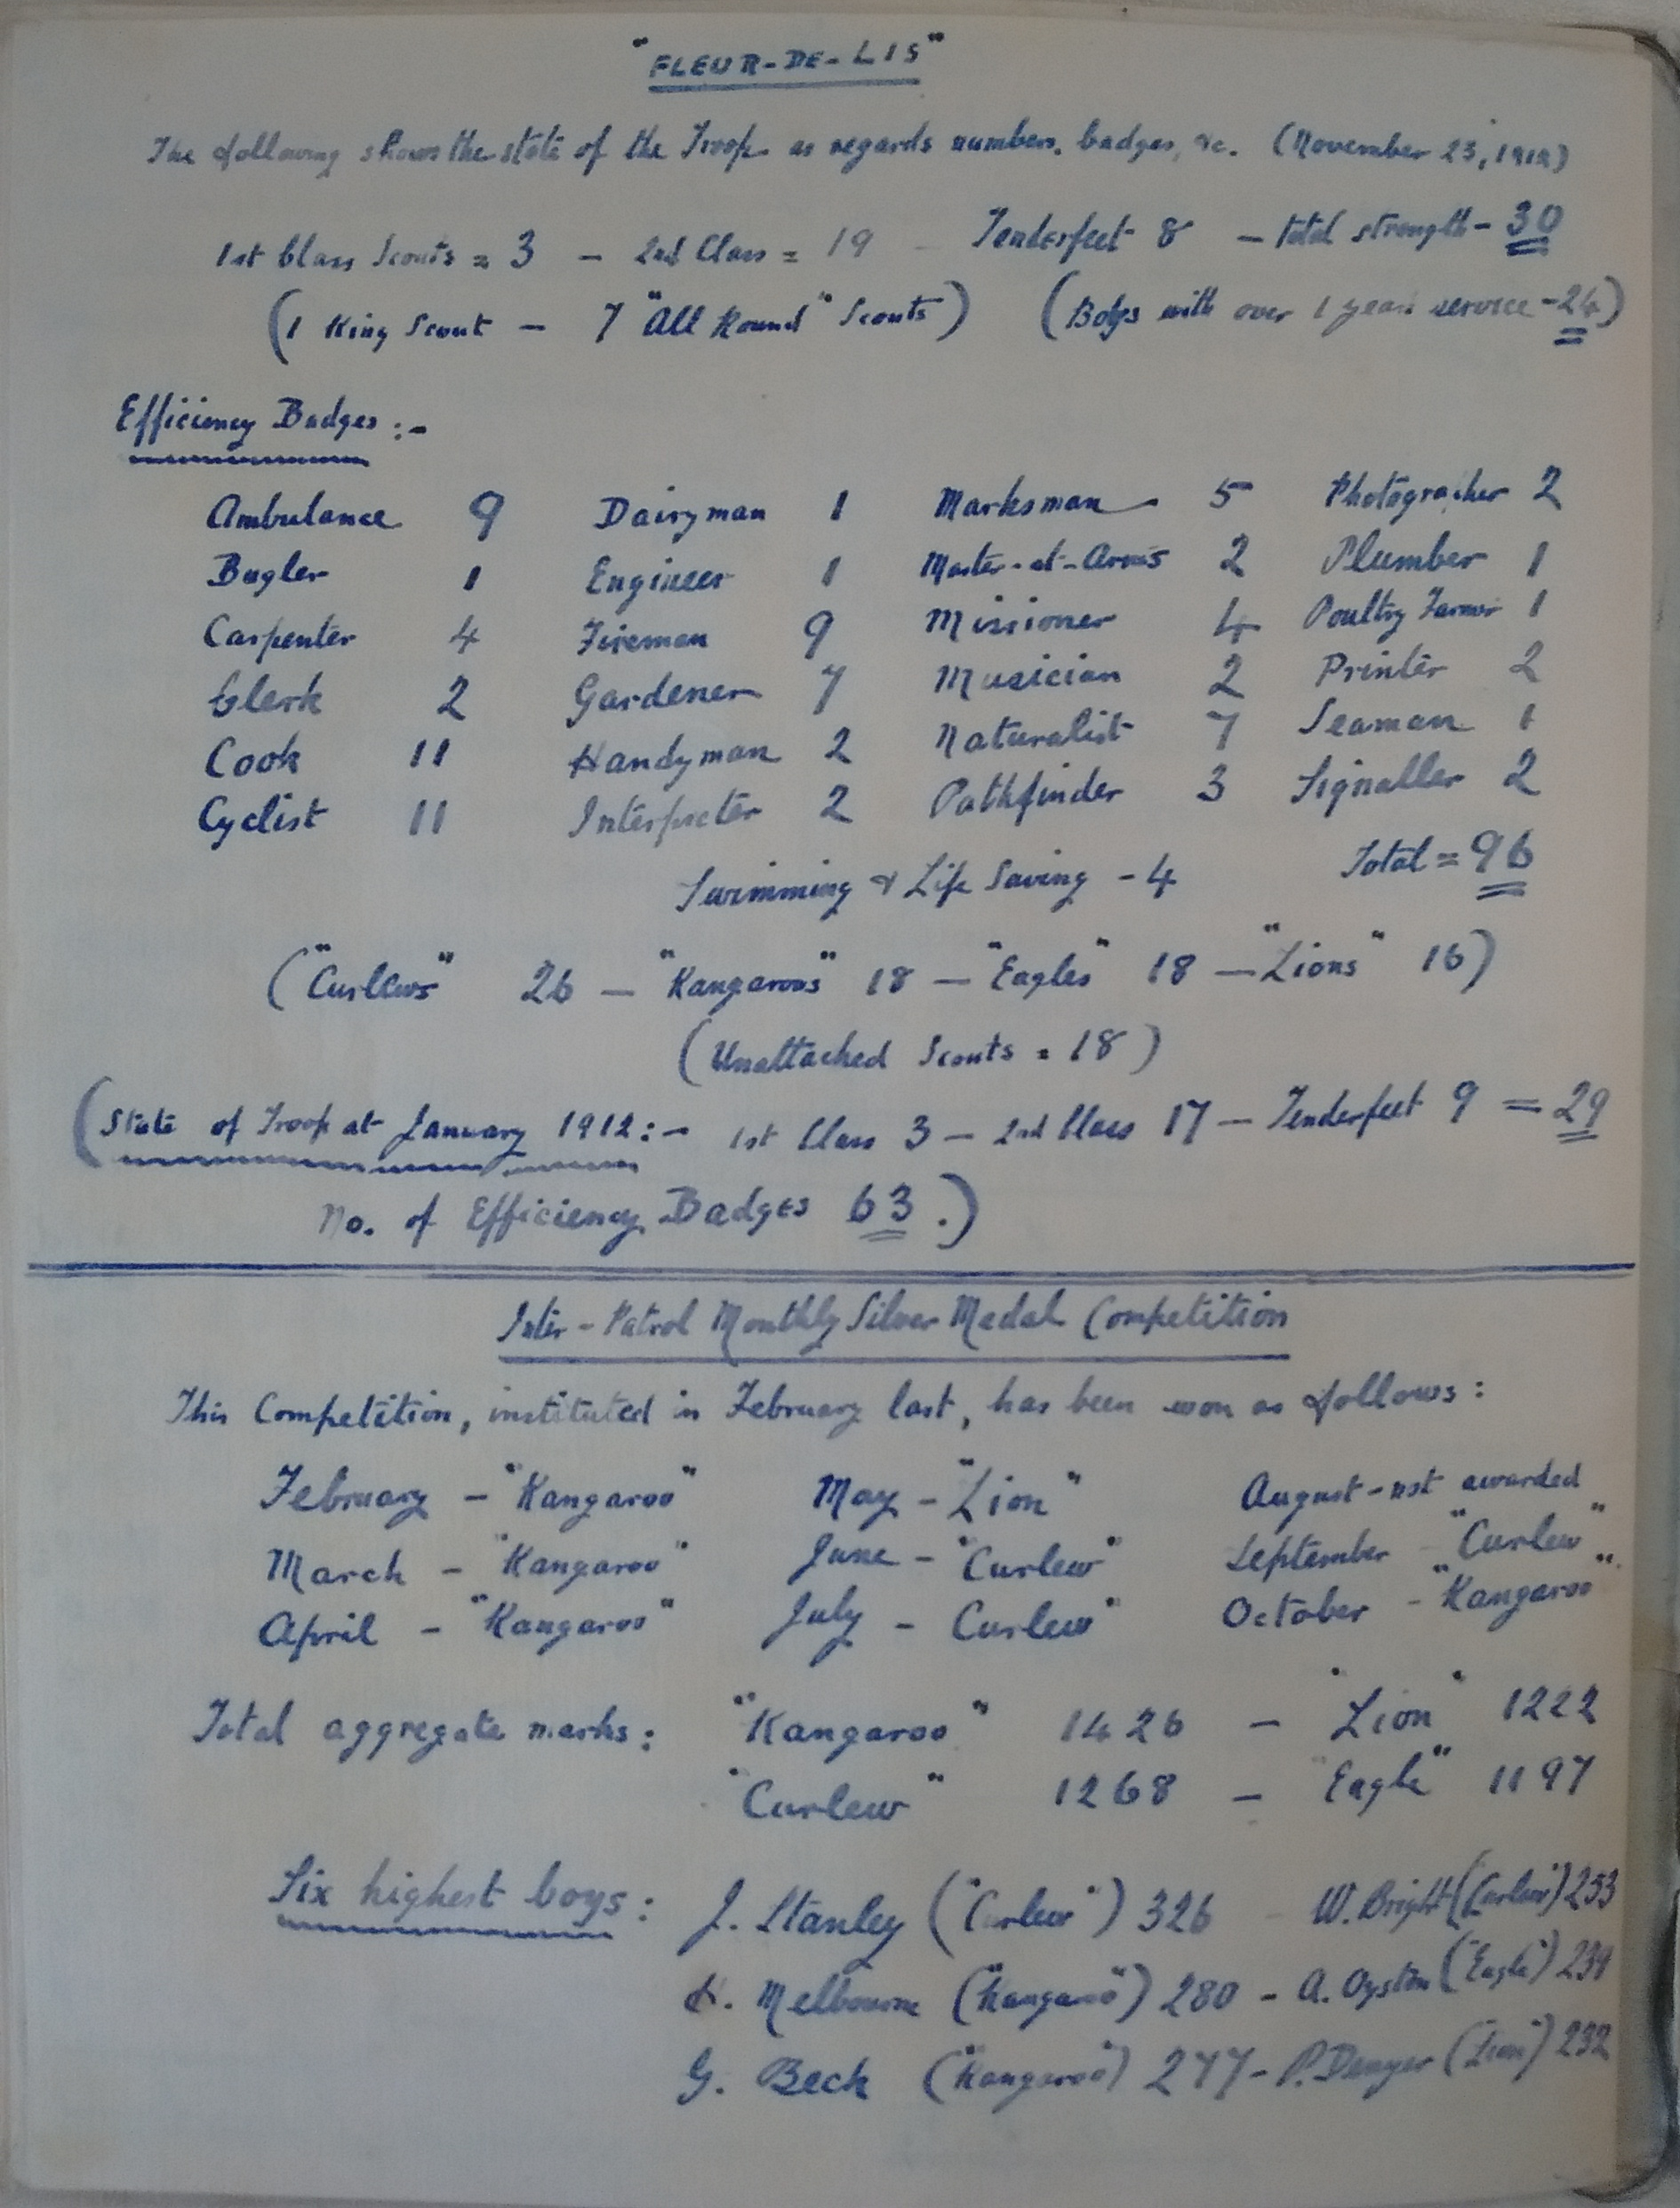 "FLEUR-DE-LIS"
The following shows the state of the Troop as regards numbers, badges, &c. (November 23, 1912)
1st Class Scouts = 3 - 2nd Class = 19 - Tenderfeet 8 - total strength - 30
(1 King Scout - 7 "All Round" Scouts) (Boys with over 1 years service - 24)
Efficiency Badges :-
Ambulance 9 Dairyman 1 Marksman 5 Photographer 2
Bugler 1 Engineer 1 Master-at-Arms 2 Plumber 1
Carpenter 4 Fireman 9 Missioner 4 Poultry Farmer 1
Clerk 2 Gardener 7 Musician 2 Printer 2
Cook 11 Handyman 2 Naturalist 7 Seaman 1
Cyclist 11 Interpreter 2 Pathfinder 3 Signaller 2
Swimming & Life Saving - 4 Total = 96
("Curlews" 26 - "Kangaroos" 18 - "Eagles" 18 - "Lions" 16)
(Unattached Scouts = 18)
(State of Troop at January 1912:- 1st Class 3 - 2nd Class 17 - Tenderfeet 9 = 29
No. of Efficiency Badges 63.)
Inter-Patrol Monthly Silver Medal Competition
This Competition, instituted in February last, has been won as follows:
February - "Kangaroo" May - "Lion" August - not awarded
March - "Kangaroo" June - "Curlew" September - "Curlew"
April - "Kangaroo" July - Curlew" October - "Kangaroo"
Total aggregate marks: "Kangaroo" 1426 - "Lion" 1222
"Curlew" 1268 - "Eagle" 1197
Six highest boys: J. Stanley ("Curlew") 326 - W. Bright (Curlew) 253
H. Melbourne ("Kangaroo") 280 - A. Oyston ("Eagle")
G. Beck ("Kangaroo") 277 - P. Denyer ("Lion") 232